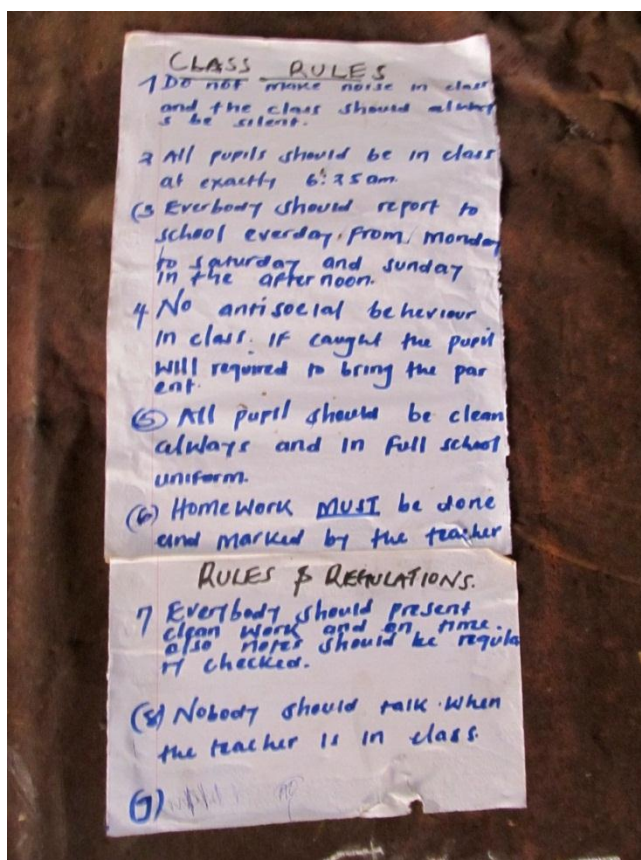 CLASS RULES
1 Do not make noise in class
and the class should alway
s be silent.
2 All pupils should be in class
at exactly 6:25am
(3 Everbody should report to
school everday from monday
to saturday and sunday
in the afternoon.
4 No antisocial beheviour
in class. If caught the pupil
will required to bring the par
ent.
(5) All pupil should be clean
always and in full school
uniform.
(6) Homework MUST be done
and marked by the teacher
RULES & REGULATIONS.
7 Everybody should present
clean work and on time.
also notes should be regula
rly checked.
(8) Nobody should talk when
the teacher is in class.